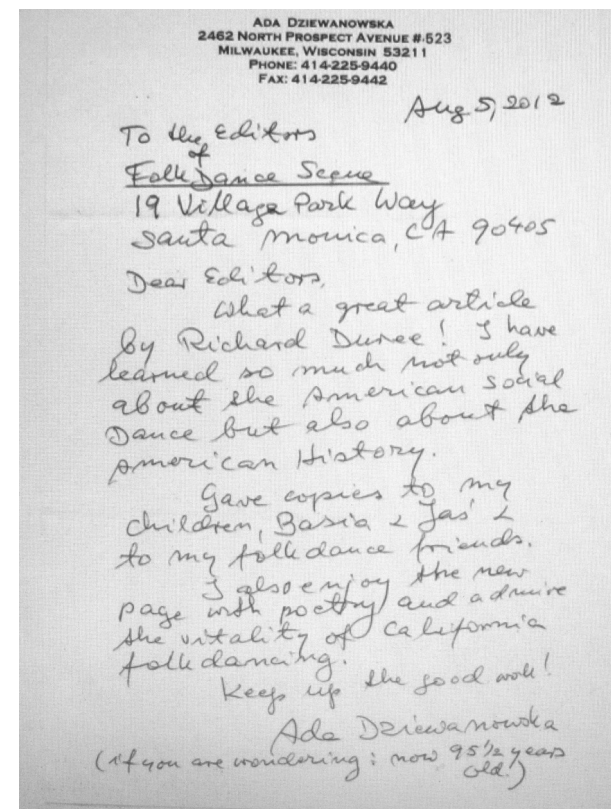 ADA DZIEWANOWSKA
2462 NORTH PROSPECT AVENUE #.523
MILWAUKEE, WISCONSIN 53211
PHONE: 414-225-9440
FAX: 414-225-9442
Aug 5, 2012
To the Editors
of
Folk Dance Scene
19 Village Park Way
Santa Monica, CA 90405
Dear Editors,
What a great article
by Richard Duree! I have
learned so much not only
about the American Social
Dance but also about the
American History.
Gave copies to my
children, Basia & Jaś &
to my folkdance friends.
I also enjoy the new
page with poetry and admire
the vitality of California
folkdancing.
Keep up the good work!
Ada Dziewanowska
(if you are wondering: now 95 1/2 years
old.)